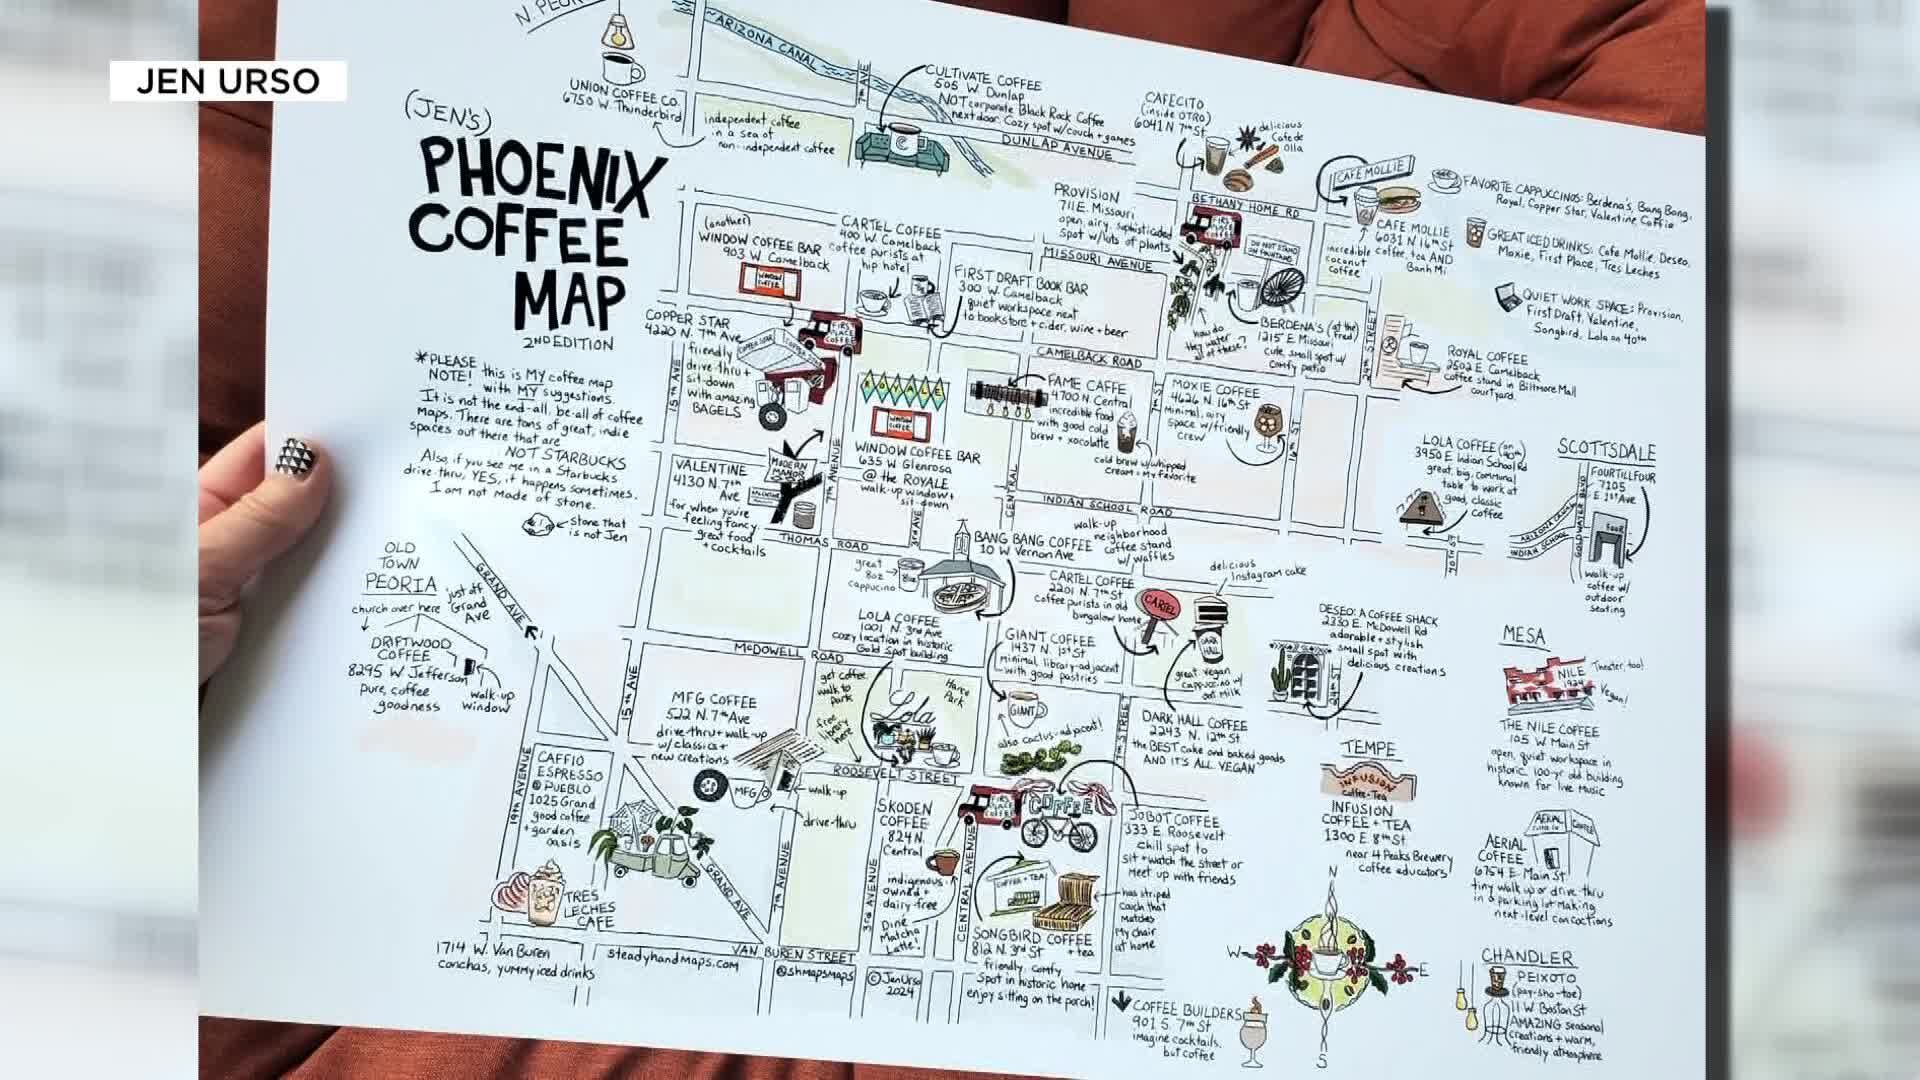 JEN URSO
N. PEORIA
(JEN'S)
PHOENIX
COFFEE
MAP
2ND EDITION
*PLEASE
NOTE! this is MY coffee map
with MY suggestions.
It is not the end-all, be-all of coffee
Maps. There are tons of great, indie
spaces out there that are
NOT STARBUCKS
Also, if you see me in a Starbucks
drive thru, YES, it happens sometimes.
I am not made of stone.
stone that
is not Jen
UNION COFFEE CO.
6750 W. Thunderbird
independent coffee
in a sea of
non-independent coffee
ARIZONA CANAL
7th AVE
CULTIVATE COFFEE
505 W. Dunlap
NOT corporate Black Rock Coffee
next door. Cozy spot w/couch + games
DUNLAP AVENUE
CAFECITO
(inside OTRO)
6041 N 7th St
delicious
Cafe de
Olla
CAFE MOLLIE
CAFE MOLLIE
6031 N 16th St
coffee, tea AND
Banh Mi
incredible
coconut
coffee
FAVORITE CAPPUCCINOS: Berdena's, Bang Bang,
Royal, Copper Star, Valentine Coffee
GREAT ICED DRINKS: Cafe Mollie, Deseo,
Moxie, First Place, Tres Leches
QUIET WORK SPACE: Provision,
First Draft, Valentine,
Songbird, Lola on 40th
PROVISION
711 E. Missouri
open, airy, sophisticated
spot w/lots of plants
BETHANY HOME RD
FIRST PLACE COFFEE
DO NOT STAND
ON FOUNTAIN
MISSOURI AVENUE
how do
they water
all of these?
BERDENA'S (at the Fred)
1215 E Missouri
cute, small spot w/
comfy patio
24th STREET
ROYAL COFFEE
2502 E. Camelback
coffee stand in Biltmore Mall
courtyard.
(another)
WINDOW COFFEE BAR
903 W. Camelback
WINDOW COFFEE
CARTEL COFFEE
400 W. Camelback
coffee purists at
hip hotel
FIRST DRAFT BOOK BAR
300 W. Camelback
quiet workspace next
to bookstore + cider, wine + beer
COPPER STAR
4220 N. 7th Ave
friendly
drive-thru +
sit-down
with amazing
BAGELS
COPPER STAR
FIRST PLACE COFFEE
15th AVE
CAMELBACK ROAD
ROYALE
WINDOW COFFEE
WINDOW COFFEE BAR
635 W Glenrosa
@ the ROYALE
walk-up window +
sit-down
FAME CAFFE
4700 N Central
incredible food
with good cold
brew + xocolatte
cold brew w/whipped
cream = my favorite
7th ST
MOXIE COFFEE
4626 N. 16th St
Minimal, airy
space w/friendly
crew
16th ST
LOLA COFFEE (on 40th)
3950 E Indian School Rd
great, big, communal
table to work at
good, classic
coffee
40th ST
SCOTTSDALE
FOURTILLFOUR
7105
E. 1st Ave
GOLDWATER BLVD
ARIZONA CANAL
INDIAN SCHOOL
FOUR
walk-up
coffee w/
outdoor
seating
VALENTINE
4130 N. 7th
Ave
for when you're
feeling fancy.
great food
+ cocktails
MODERN
MANOR
7th AVENUE
CENTRAL
3rd AVE
INDIAN SCHOOL ROAD
THOMAS ROAD
BANG BANG COFFEE
10 W Vernon Ave
walk-up
neighborhood
coffee stand
w/ waffles
great
8oz
cappucino
8oz
CARTEL COFFEE
2201 N. 7th St
coffee purists in old
bungalow home
CARTEL
delicious
Instagram cake
DARK
HALL
great vegan
cappuccino w/
oat milk
DESEO: A COFFEE SHACK
2330 E. McDowell Rd
adorable + stylish
small spot with
delicious creations
24th ST
OLD
TOWN
PEORIA
just off
Grand
Ave
church over here
DRIFTWOOD
COFFEE
8295 W. Jefferson
pure, coffee
goodness
walk-up
window
GRAND AVE
LOLA COFFEE
1001 N. 3rd Ave
cozy location in historic
Gold Spot building
GIANT COFFEE
1437 N. 1st St
minimal, library-adjacent
with good pastries
GIANT
also cactus-adjacent!
McDOWELL ROAD
15th AVE
get coffee
walk to
park
free
library
here
Hance
Park
Lola
MFG COFFEE
522 N. 7th Ave
drive-thru + walk-up
w/ classics +
new creations
MFG
walk-up
drive-thru
ROOSEVELT STREET
7th STREET
DARK HALL COFFEE
2243 N. 12th St
the BEST cake and baked goods
AND IT'S ALL VEGAN
MESA
NILE
1924
Theater, too!
Vegan!
THE NILE COFFEE
105 W Main St
open, quiet workspace in
historic 100-yr old building
known for live music
TEMPE
INFUSION
coffee + Tea
INFUSION
COFFEE + TEA
1300 E. 8th St.
near 4 Peaks Brewery
coffee educators
AERIAL
COFFEE
AERIAL
COFFEE
6754 E. Main St
tiny walk up or drive-thru
in a parking lot making
next-level concoctions
19th AVENUE
CAFFIO
ESPRESSO
@ PUEBLO
1025 Grand
good coffee
+ garden
oasis
GRAND AVE
7th AVENUE
3rd AVENUE
CENTRAL AVENUE
SKODEN
COFFEE
824 N.
Central
indigenous-
owned +
dairy-free
Diné
Matcha
Latte!
FIRST PLACE COFFEE
COFFEE
JOBOT COFFEE
333 E. Roosevelt
chill spot to
sit + watch the street or
meet up with friends
COFFEE + TEA
has striped
couch that
matches
my chair
at home
SONGBIRD COFFEE
+ tea
812 N. 3rd St
friendly, comfy
spot in historic home
enjoy sitting on the porch!
TRES
LECHES
CAFE
1714 W. Van Buren
conchas, yummy iced drinks
steadyhandmaps.com
VAN BUREN STREET
@shmapsmaps
© Jen Urso
2024
COFFEE BUILDERS
901 S. 7th St
imagine cocktails,
but coffee
N
W
E
S
CHANDLER
PEIXOTO
(pay-sho-toe)
11 W Boston St
AMAZING seasonal
creations + warm,
friendly atmosphere